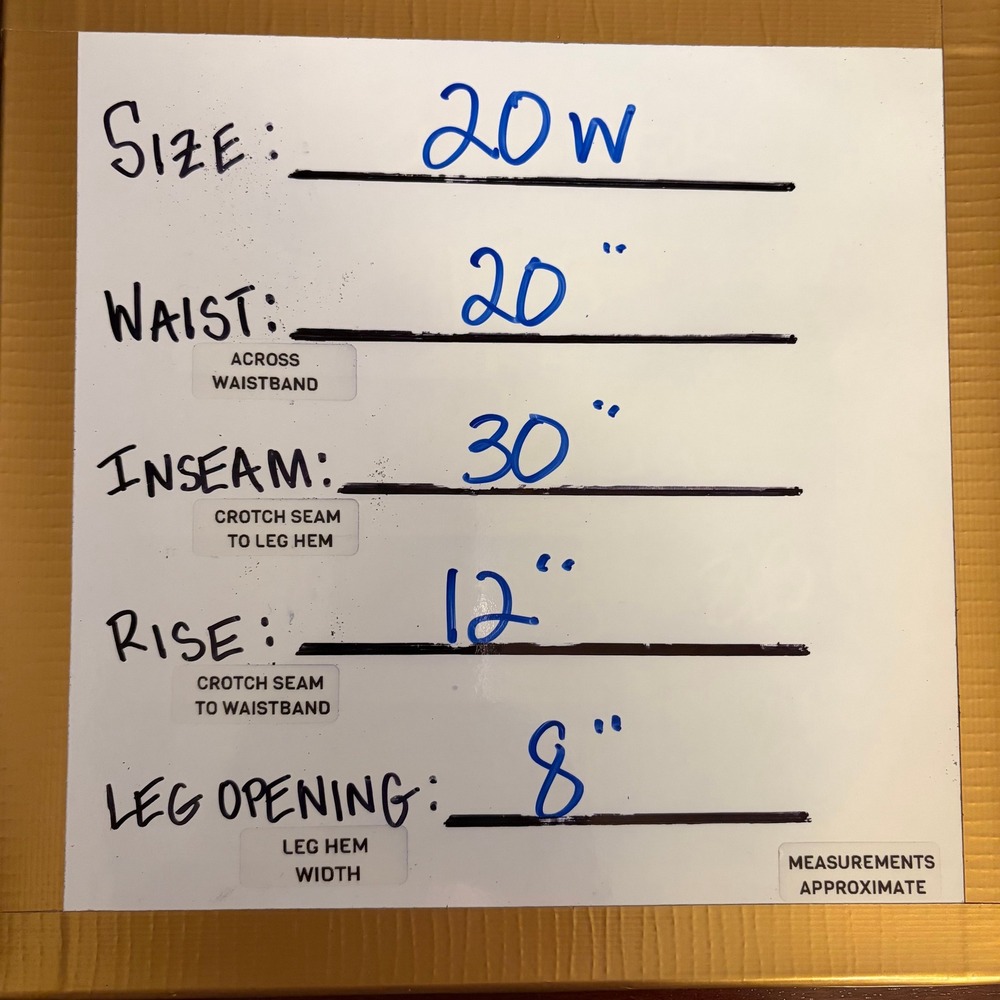 SIZE: 20W
WAIST: 20"
ACROSS
WAISTBAND
INSEAM: 30"
CROTCH SEAM
TO LEG HEM
RISE: 12"
CROTCH SEAM
TO WAISTBAND
LEG OPENING: 8"
LEG HEM
WIDTH
MEASUREMENTS
APPROXIMATE